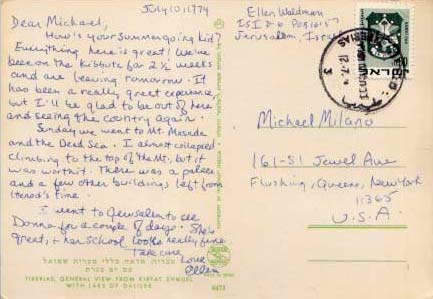 July 10, 1974
Dear Michael,
How's your summer going kid?
Everything here is great! We've
been on the Kibbutz for 2 1/2 weeks
and are leaving tomorrow. It
has been a really great experience,
but I'll be glad to be out of here
and seeing the country again.
Sunday we went to Mt. Masada
and the Dead Sea. I almost collapsed
climbing to the top of the Mt, but it
was worth it. There was a palace
and a few other buildings left from
Herod's time.
I went to Jerusalem to see
Donna for a couple of days. She's
great, & her school looks really fine
Take care
Love
Ellen
Ellen Waldman
Jerusalem, Israel
Michael Milano
161-51 Jewel Ave
Flushing, Queens, New York
11365
U.S.A.
טבריה, מראה כללי מקרית שמואל
עם ים כנרת
TIBERIAS, GENERAL VIEW FROM KIRYAT SHMUEL
WITH LAKE OF GALILEE